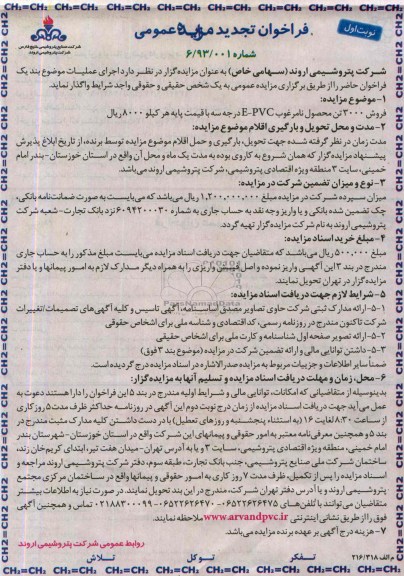 نوبت اول
فراخوان تجدید مزایده عمومی
شماره ۶/۹۳/۰۰۱
شرکت صنایع پتروشیمی خلیج فارس
شرکت پتروشیمی اروند
شرکت پتروشیمی اروند (سهامی خاص) به عنوان مزایده‌گزار در نظر دارد اجرای عملیات موضوع بند یک
فراخوان حاضر را از طریق برگزاری مزایده عمومی به یک شخص حقیقی و حقوقی واجد شرایط واگذار نماید.
۱- موضوع مزایده:
فروش ۳۰۰۰ تن محصول نامرغوب E-PVC درجه سه با قیمت پایه هر کیلو ۸۰۰۰ ریال
۲- مدت و محل تحویل و بارگیری اقلام موضوع مزایده:
مدت زمان در نظر گرفته شده جهت تحویل، بارگیری و حمل اقلام موضوع مزایده توسط برنده، از تاریخ ابلاغ پذیرش
پیشنهاد مزایده‌گزار که همان شروع به کاروی بوده به مدت یک ماه و محل آن واقع در استان خوزستان-بندر امام
خمینی، سایت ۳ منطقه ویژه اقتصادی پتروشیمی، شرکت پتروشیمی اروند می‌باشد.
۳- نوع و میزان تضمین شرکت در مزایده:
میزان سپرده شرکت در مزایده مبلغ ۱,۲۰۰,۰۰۰,۰۰۰ ریال می‌باشد که می‌بایست به صورت ضمانت‌نامه بانکی،
چک تضمین شده بانکی و یا واریز وجه نقد به حساب جاری به شماره ۶۰۹۴۲۰۰۰۳۰ نزد بانک تجارت-شعبه شرکت
پتروشیمی اروند به نام شرکت مزایده گزار تهیه گردد.
۴- مبلغ خرید اسناد مزایده:
مبلغ ۵۰۰,۰۰۰ ریال می‌باشد که متقاضیان جهت دریافت اسناد مزایده می‌بایست مبلغ مذکور را به حساب جاری
مندرج در بند ۳ این آگهی واریز نموده و اصل فیش واریزی را به همراه دیگر مدارک لازم به امور پیمانها و یا دفتر
مزایده گزار در تهران تحویل نمایند.
۵- شرایط لازم جهت دریافت اسناد مزایده:
۵-۱- ارائه مدارک ثبتی شرکت حاوی تصاویر مصدق اساسنامه، آگهی تاسیس و کلیه آگهی‌های تصمیمات/تغییرات
شرکت تاکنون مندرج در روزنامه رسمی، کد اقتصادی و شناسه ملی برای اشخاص حقوقی
۵-۲- ارائه تصویر صفحه اول شناسنامه و کارت ملی برای اشخاص حقیقی
۵-۳- داشتن توانایی مالی و ارائه تضمین شرکت در مزایده (موضوع بند ۳ فوق)
ضمنا سایر اطلاعات و جزییات مربوط به مزایده صدرالاشاره در اسناد مزایده درج گردیده است.
۶- محل، زمان و مهلت دریافت اسناد مزایده و تسلیم آنها به مزایده گزار:
بدینوسیله از متقاضیانی که امکانات، توانایی مالی و شرایط اولیه مندرج در بند ۵ این فراخوان را دارا هستند دعوت به
عمل می‌آید جهت دریافت اسناد مزایده از زمان درج نوبت دوم این آگهی در روزنامه حداکثر ظرف مدت ۵ روز کاری
از ساعت ۸:۳۰ لغایت ۱۶ (به استثناء پنجشنبه و روزهای تعطیل) با در دست داشتن کلیه مدارک مثبت مندرج در
بند ۵ و همچنین معرفی‌نامه معتبر به امور حقوقی و پیمانهای این شرکت واقع در استان خوزستان-شهرستان بندر
امام خمینی، منطقه ویژه اقتصادی پتروشیمی، سایت ۳ و یا به آدرس تهران-میدان هفت تیر، ابتدای کریم خان زند،
ساختمان شرکت ملی صنایع پتروشیمی، جنب بانک تجارت، طبقه سوم، دفتر شرکت پتروشیمی اروند مراجعه و
اسناد مزایده را پس از تکمیل، ظرف مدت ۷ روز کاری به امور حقوقی و پیمانها واقع در ساختمان مرکزی مجتمع
پتروشیمی اروند و یا آدرس دفتر تهران شرکت، مندرج در این بند تحویل نمایند. در صورت نیاز به اطلاعات بیشتر
متقاضیان می‌توانند با تلفن‌های ۰۶۵۲۲۶۲۶۴۷۵-۰۶۵۲۲۶۲۶۴۷۰ و ۰۲۱۸۸۳۰۰۰۹۹ تماس و همچنین آگهی
فوق را از طریق نشانی اینترنتی www.arvandpvc.ir ملاحظه نمایند.
۷- هزینه درج آگهی بر عهده برنده مزایده می‌باشد.
روابط عمومی شرکت پتروشیمی اروند
م الف ۲۱۶/۳۱۸
تفکر توکل تلاش